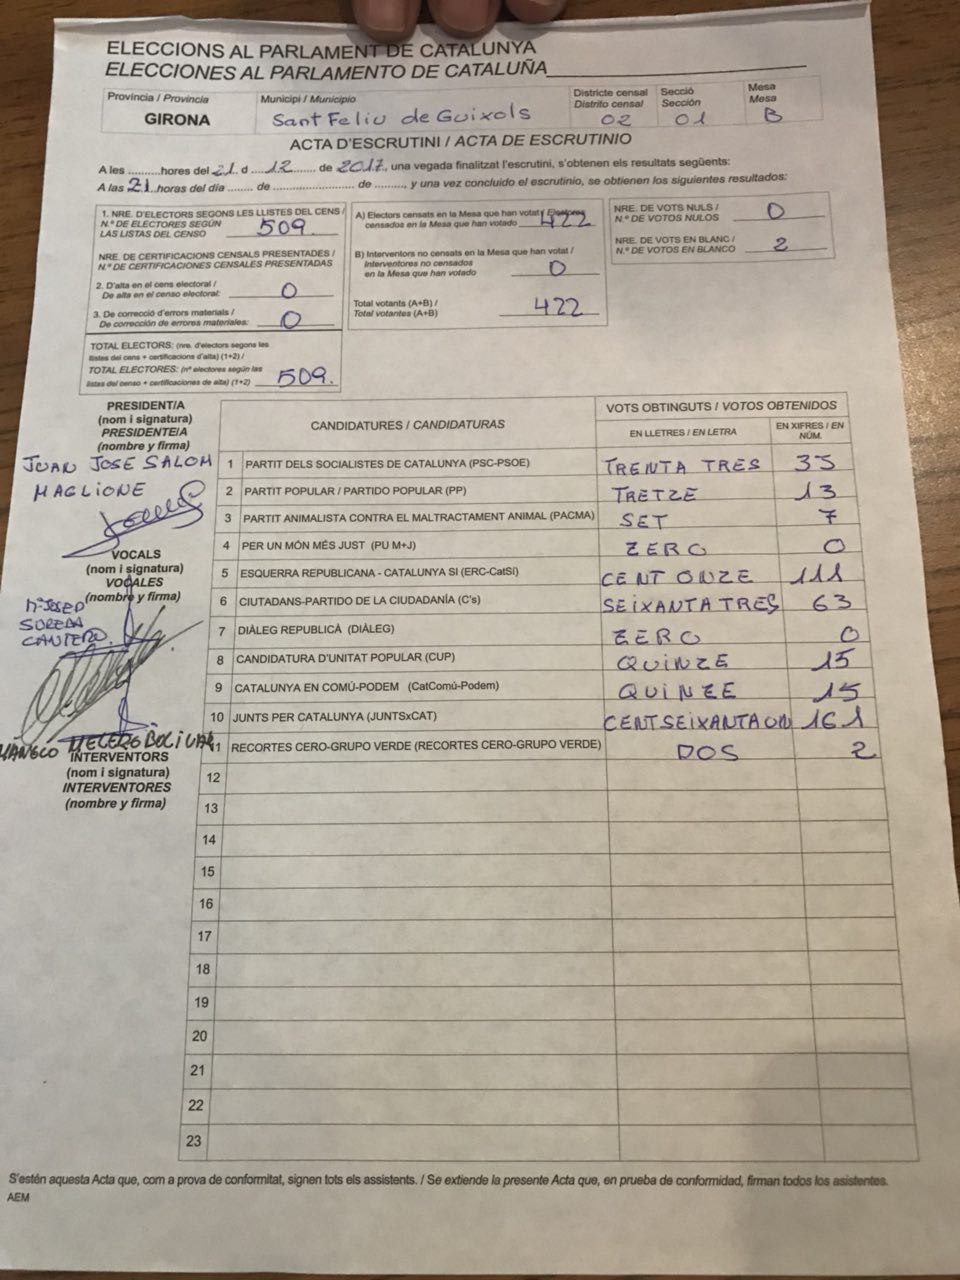 ELECCIONS AL PARLAMENT DE CATALUNYA
ELECCIONES AL PARLAMENTO DE CATALUÑA
Província / Provincia
GIRONA
Municipi / Municipio
Sant Feliu de Guíxols
Districte censal
Distrito censal
02
Secció
Sección
01
Mesa
Mesa
B
ACTA D'ESCRUTINI / ACTA DE ESCRUTINIO
A les ..........hores del 21 d ....12...... de 2017, una vegada finalitzat l'escrutini, s'obtenen els resultats següents:
A las 21 horas del día ........ de ......................... de ........, y una vez concluido el escrutinio, se obtienen los siguientes resultados:
1. NRE. D'ELECTORS SEGONS LES LLISTES DEL CENS /
N.º DE ELECTORES SEGÚN
LAS LISTAS DEL CENSO 509.
NRE. DE CERTIFICACIONS CENSALS PRESENTADES /
N.º DE CERTIFICACIONES CENSALES PRESENTADAS
2. D'alta en el cens electoral /
De alta en el censo electoral: 0
3. De correcció d'errors materials /
De corrección de errores materiales: 0
TOTAL ELECTORS: (nre. d'electors segons les
llistes del cens + certificacions d'alta) (1+2) /
TOTAL ELECTORES: (nº electores según las
listas del censo + certificaciones de alta) (1+2) 509.
A) Electors censats en la Mesa que han votat / Electores
censados en la Mesa que han votado 422
B) Interventors no censats en la Mesa que han votat /
Interventores no censados
en la Mesa que han votado 0
Total votants (A+B) /
Total votantes (A+B) 422
NRE. DE VOTS NULS /
N.º DE VOTOS NULOS 0
NRE. DE VOTS EN BLANC /
N.º DE VOTOS EN BLANCO 2
PRESIDENT/A
(nom i signatura)
PRESIDENTE/A
(nombre y firma)
JUAN JOSE SALOM
MAGLIONE
VOCALS
(nom i signatura)
VOCALES
(nombre y firma)
Mª JOSEP
SUREDA
CANTERO.
BOLIVAR
INTERVENTORS
(nom i signatura)
INTERVENTORES
(nombre y firma)
CANDIDATURES / CANDIDATURAS
VOTS OBTINGUTS / VOTOS OBTENIDOS
EN LLETRES / EN LETRA
EN XIFRES / EN
NÚM.
1 PARTIT DELS SOCIALISTES DE CATALUNYA (PSC-PSOE) TRENTA TRES 33
2 PARTIT POPULAR / PARTIDO POPULAR (PP) TRETZE 13
3 PARTIT ANIMALISTA CONTRA EL MALTRACTAMENT ANIMAL (PACMA) SET 7
4 PER UN MÓN MÉS JUST (PU M+J) ZERO 0
5 ESQUERRA REPUBLICANA - CATALUNYA SÍ (ERC-CatSí) CENT ONZE 111
6 CIUTADANS-PARTIDO DE LA CIUDADANÍA (C's) SEIXANTA TRES 63
7 DIÀLEG REPUBLICÀ (DIÀLEG) ZERO 0
8 CANDIDATURA D'UNITAT POPULAR (CUP) QUINZE 15
9 CATALUNYA EN COMÚ-PODEM (CatComú-Podem) QUINZE 15
10 JUNTS PER CATALUNYA (JUNTSxCAT) CENT SEIXANTA UN 161
11 RECORTES CERO-GRUPO VERDE (RECORTES CERO-GRUPO VERDE) DOS 2
12
13
14
15
16
17
18
19
20
21
22
23
S'estén aquesta Acta que, com a prova de conformitat, signen tots els assistents. / Se extiende la presente Acta que, en prueba de conformidad, firman todos los asistentes.
AEM